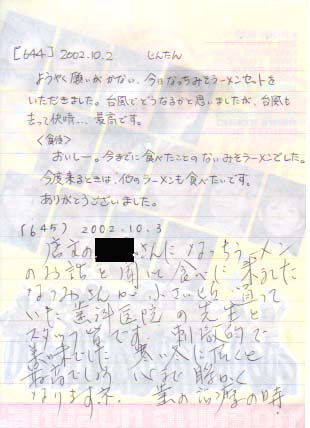 [644] 2002.10.2 じんたん
ようやく願いがかない、今日なっちみそラーメンセットを
いただきました。台風でどうなるかと思いましたが、台風も
去って快晴…、最高です。
<食後>
おいしー。今までに食べたことのないみそラーメンでした。
今度来るときは、他のラーメンも食べたいです。
ありがとうございました。
[645] 2002.10.3
店主の さんになっちラーメン
のお話を聞いて食べに来ました
なつみさんが小さい頃 通って
いた歯科医院の先生と
スタッフ 皆です 刺激的で
美味でした 寒い冬に
最高でしょう 心まで暖かく
なりますネ の の時